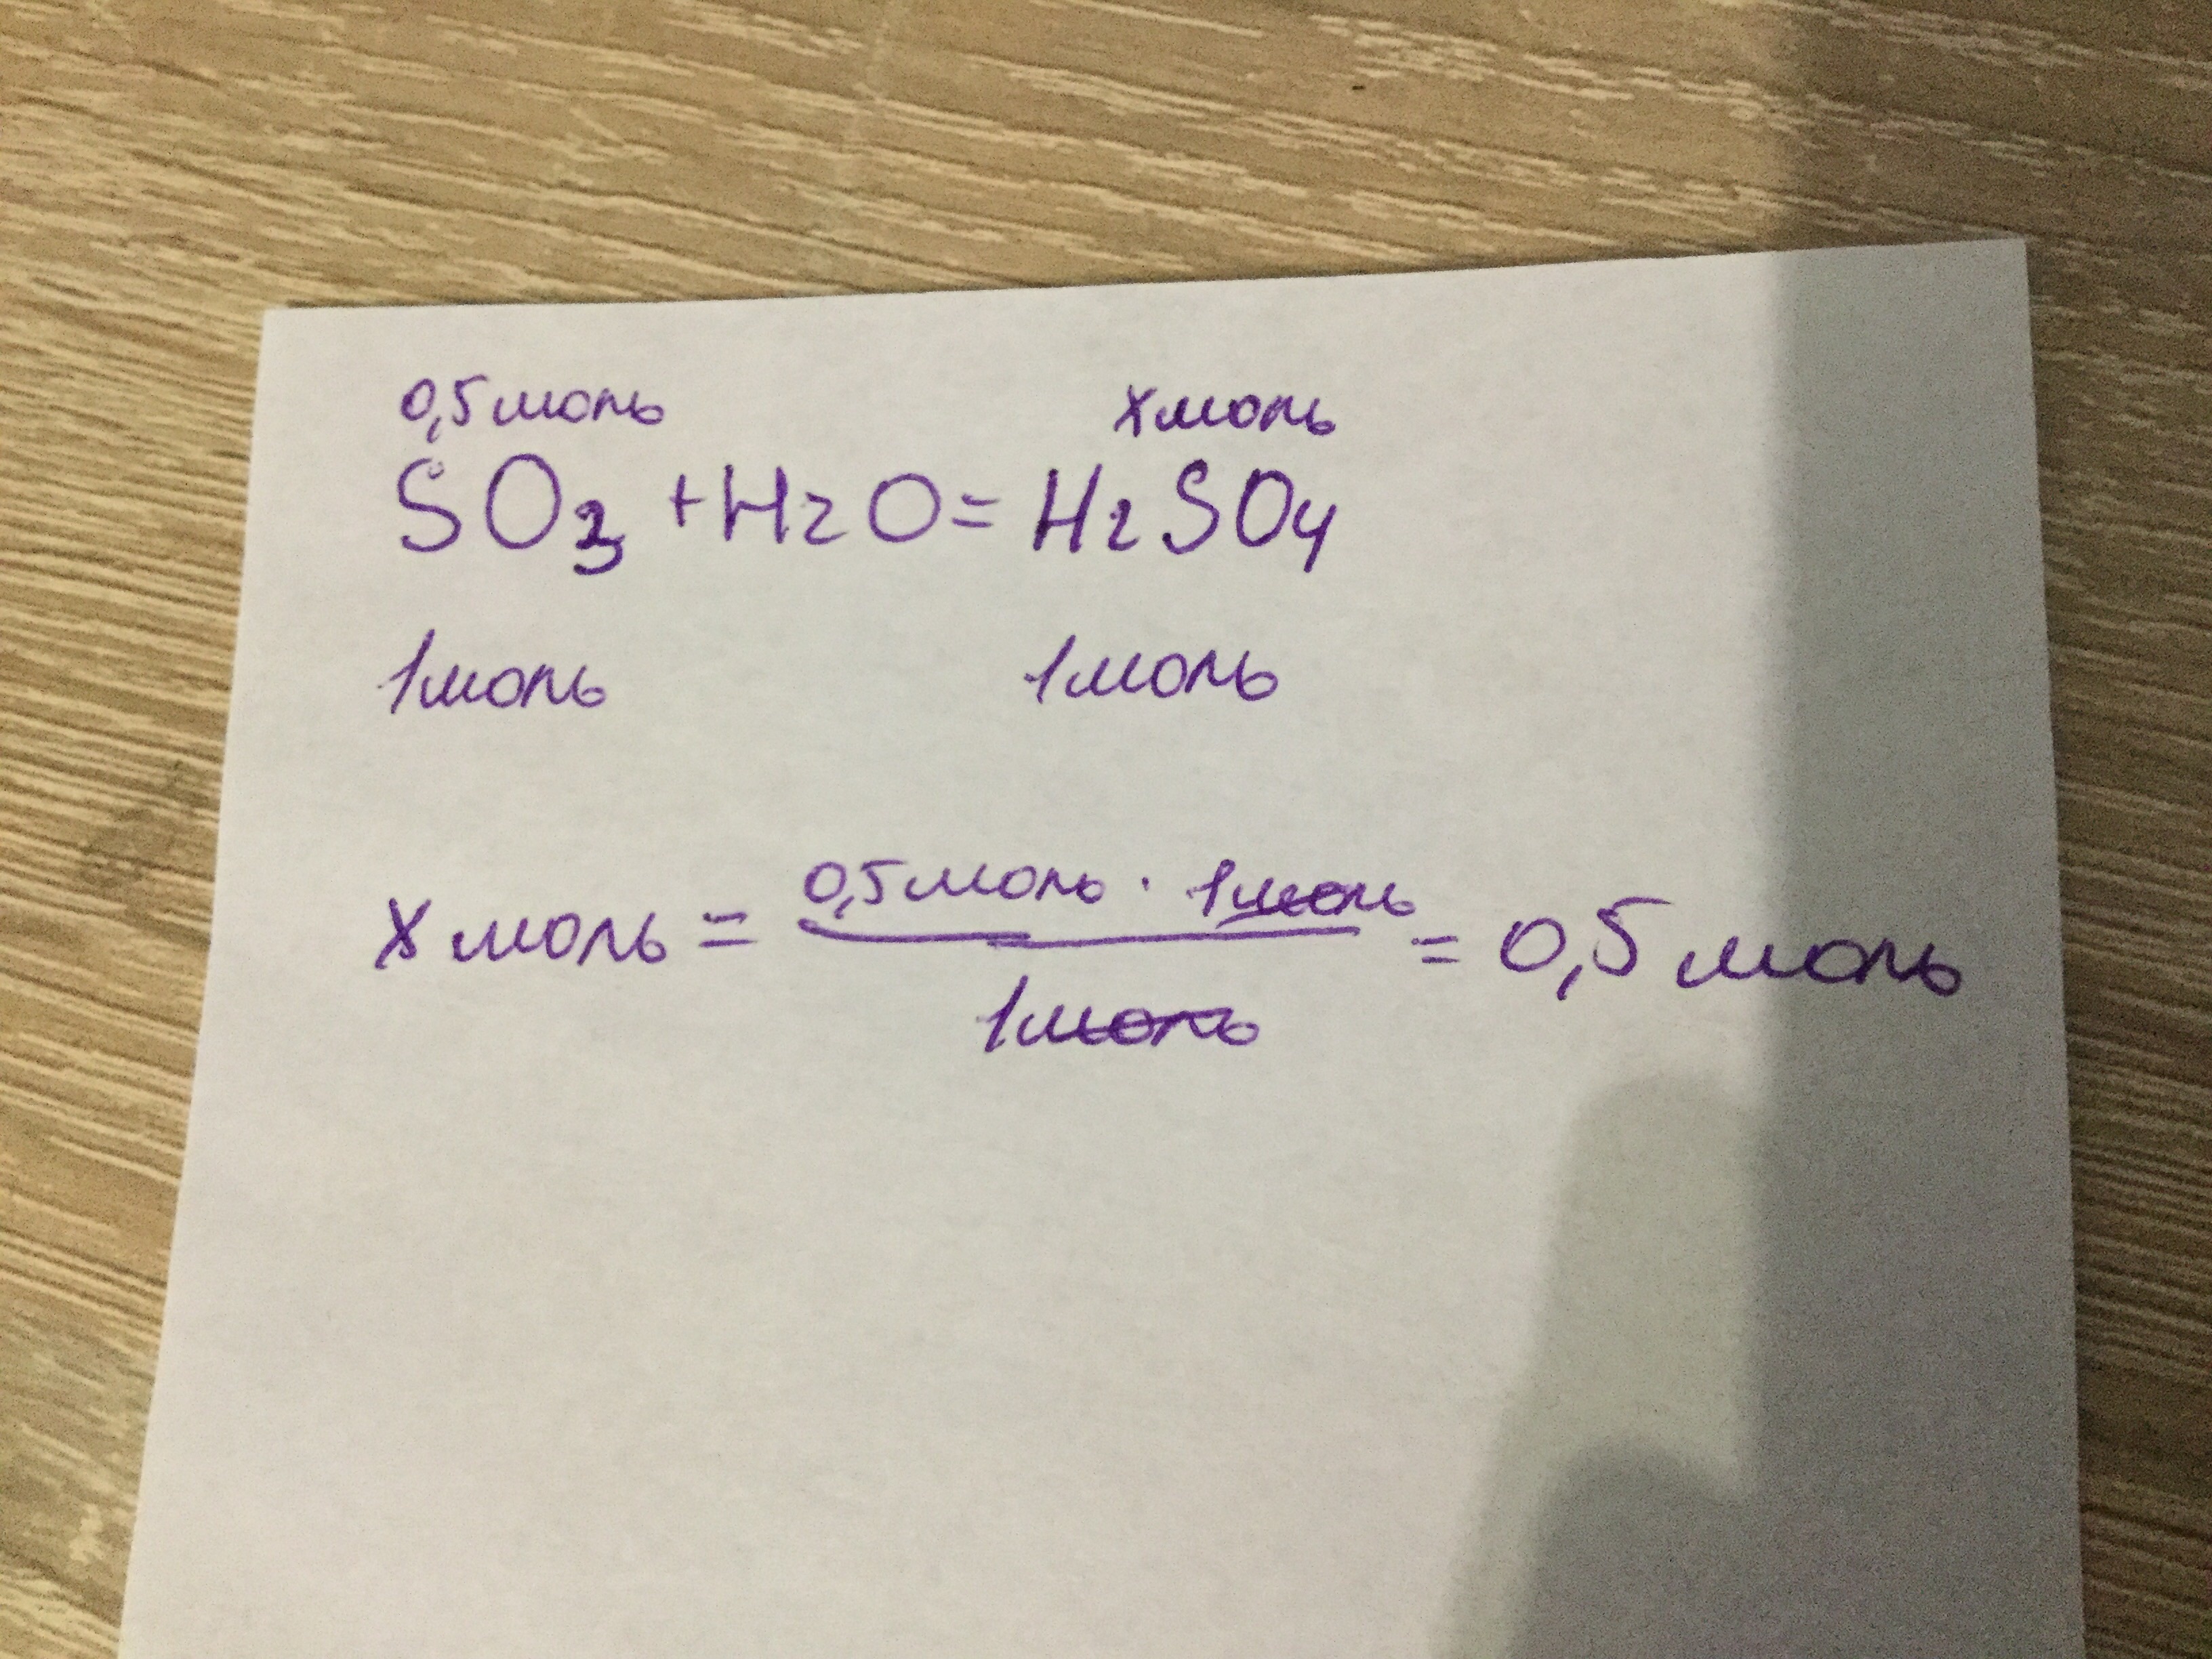 0,5 моль х моль
SO3 + H2O = H2SO4
1 моль 1 моль
х моль = 0,5 моль · 1 моль / 1 моль = 0,5 моль